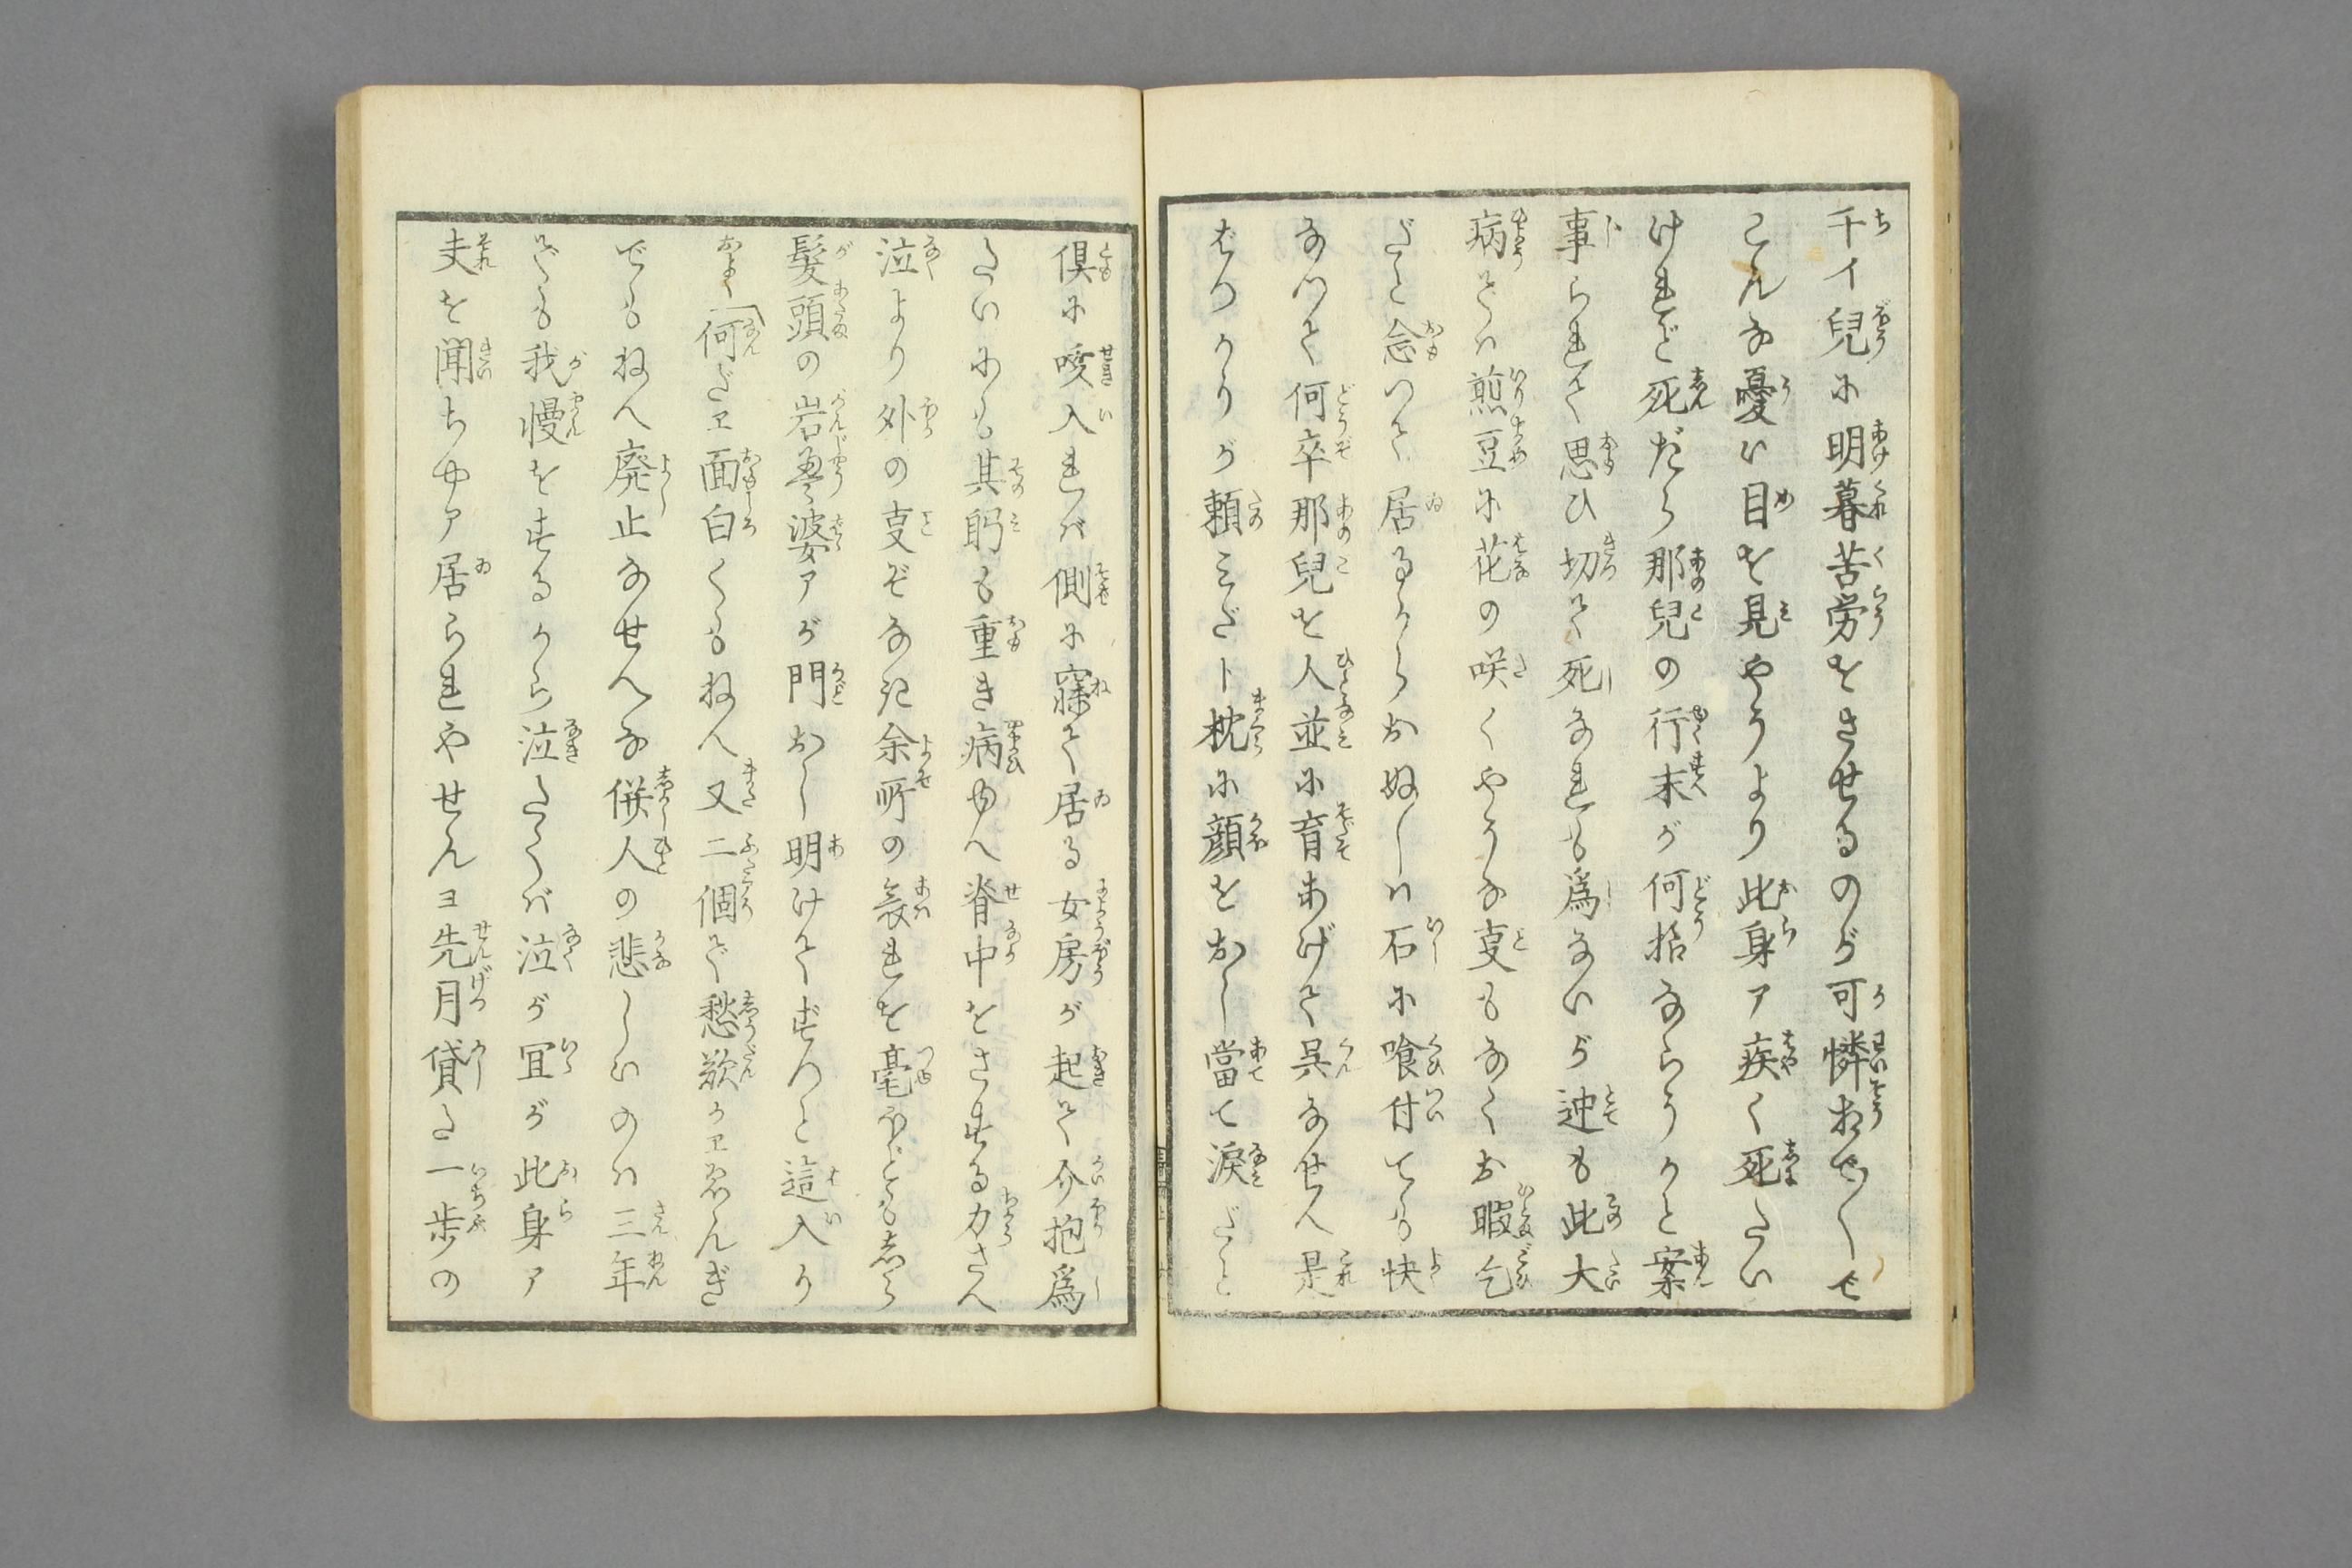 千イ兒に明暮苦労をさせるのが可憐おざへしで
こんな憂い目を見やうより此身ア疾く死たい
けれど死だら那兒の行末が何拾ならうかと案
事られて思ひ切て死なれも為ないが迚も此大
病ぞは煎豆に花の咲くやうな支もなくお暇乞
だと念つて居るからおぬしは石に喰付ても快
なつて何卒那兒を人並に育あげて呉なせへ是
ばつかりが頼みだト枕に顔をおし當て涙だと
俱に咳入れば側に寐て居る女房が起て介抱為
たいにも其躬も重き病ゆへ脊中をさする力さへ
泣より外の支ぞなき余所の哀れを毫ほども志ら
髮頭の岩乗婆アが門おし明けてずつと這入り
おまく「何だヱ面白くもねへ又二個で愁歎かヱゑんぎ
でもねへ廃止なせへな併人の悲しいのは三年
でも我慢をするから泣たくば泣が宜が此身ア
夫を聞ちやア居られやせんヨ先月貸た一歩の